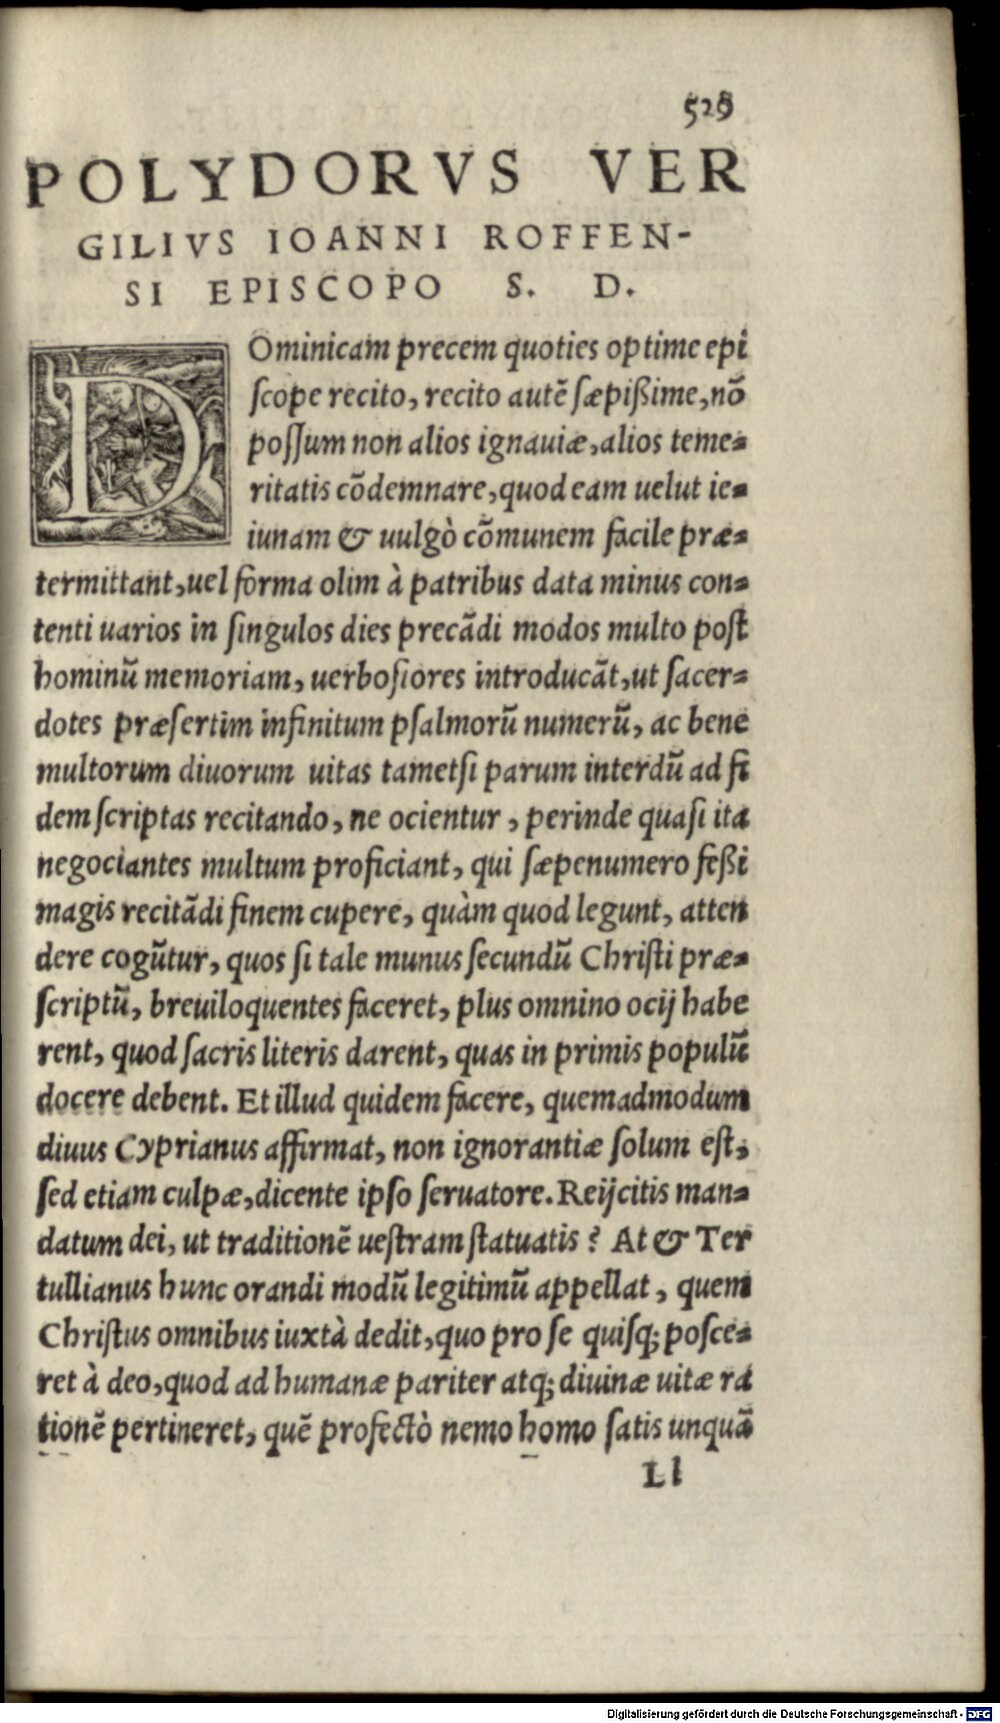 529
POLYDORVS VER
GILIVS IOANNI ROFFEN-
SI EPISCOPO S. D.
DOminicam precem quoties optime epi
scope recito, recito autē sæpißime, nō
possum non alios ignauiæ, alios teme=
ritatis cōdemnare, quod eam uelut ie=
iunam & uulgò cōmunem facile præ=
termittant, uel forma olim à patribus data minus con=
tenti uarios in singulos dies precādi modos multo post
hominū memoriam, uerbosiores introducāt, ut sacer=
dotes præsertim infinitum psalmorū numerū, ac bene
multorum diuorum uitas tametsi parum interdū ad fi
dem scriptas recitando, ne ocientur, perinde quasi ita
negociantes multum proficiant, qui sæpenumero feßi
magis recitādi finem cupere, quàm quod legunt, atten
dere cogūtur, quos si tale munus secundū Christi præ=
scriptū, breuiloquentes faceret, plus omnino ocij habe
rent, quod sacris literis darent, quas in primis populū
docere debent. Et illud quidem facere, quemadmodum
diuus Cyprianus affirmat, non ignorantiæ solum est,
sed etiam culpæ, dicente ipso seruatore. Reijcitis man=
datum dei, ut traditionē uestram statuatis? At & Ter
tullianus hunc orandi modū legitimū appellat, quem
Christus omnibus iuxtà dedit, quo pro se quisq; posce=
ret à deo, quod ad humanæ pariter atq; diuinæ uitæ ra
tionē pertineret, quē profectò nemo homo satis unquā
Ll
Digitalisierung gefördert durch die Deutsche Forschungsgemeinschaft - DFG